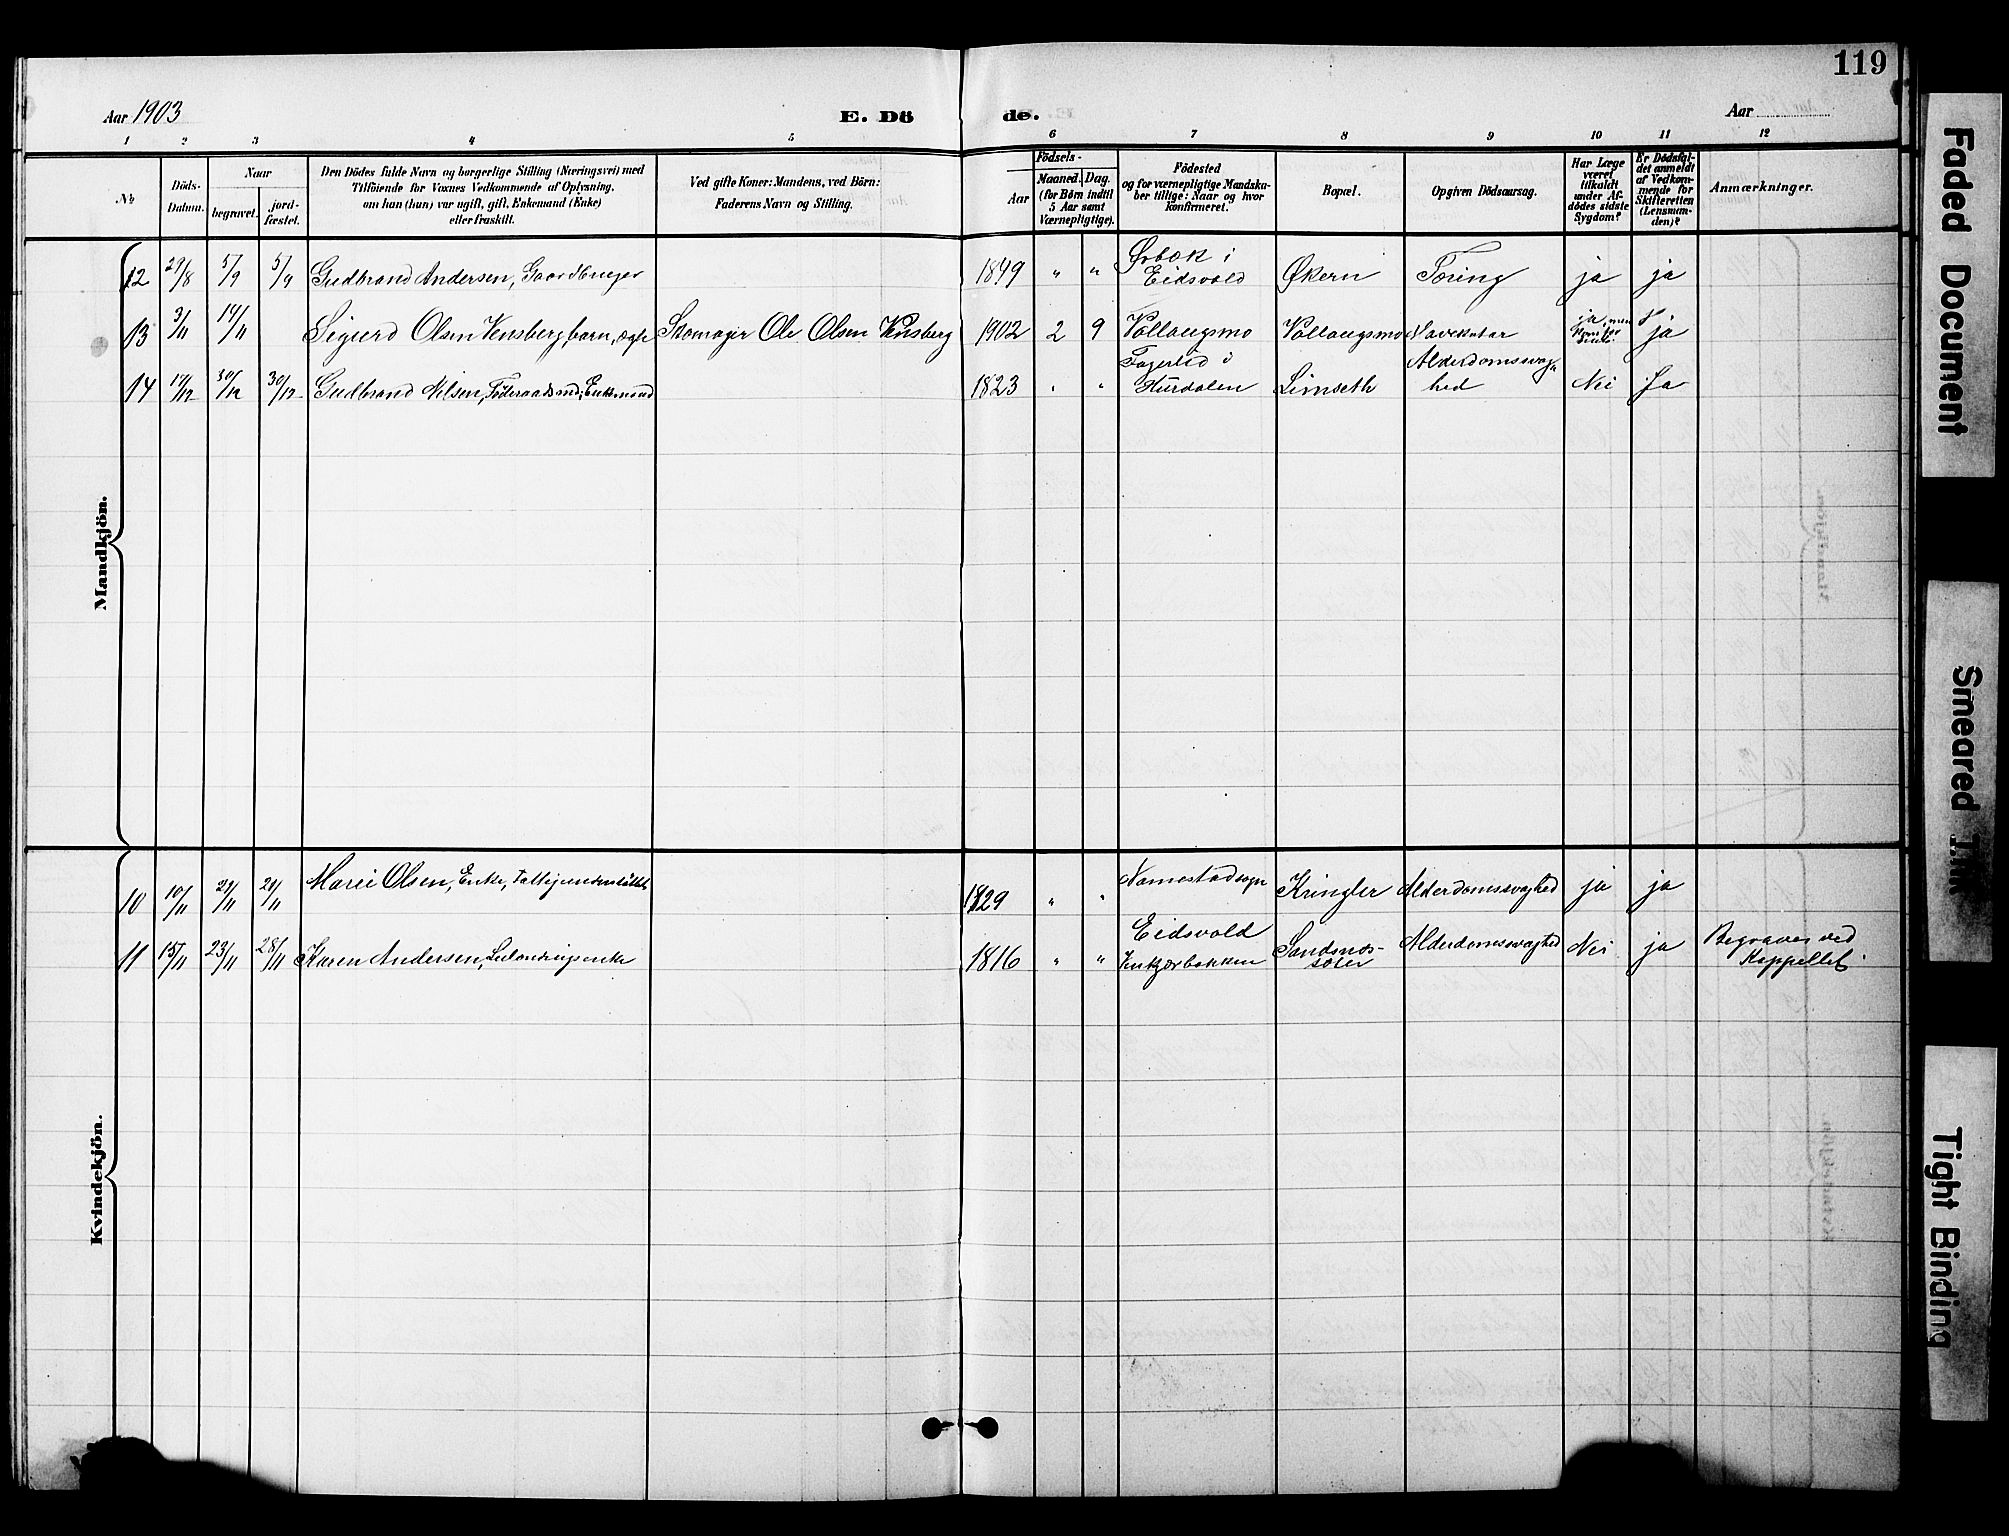 119
Aar 1903 E. Dö de. Aar
1 2 3 4 5 6 7 8 9 10 11 12
No
Döds-Datum.
Naar
begravet.
jord-fæstet.
Den Dödes fulde Navn og borgerlige Stilling (Næringsvei) med
Tilföiende for Voxnes Vedkommende af Oplysning.
om han (hun) var ugift, gift, Enkemand (Enke)
eller fraskilt.
Ved gifte Koner: Mandens, ved Börn:
Faderens Navn og Stilling.
Födsels-
Aar
Maaned. Dag.
(for Börn indtil
5 Aar samt
Værnepligtige).
Födested
og for værnepligtige Mandska-
ber tillige: Naar og hvor
konfirmeret.
Bopæl.
Opgiven Dödsaarsag.
Har Læge
været
tilkaldt
under Af-
dödes sidste
Sygdom?
Er Dödsfal-
det anmeldt
af Vedkom-
mende for
Skifteretten
(Lensman-
den)?
Anmærkninger.
Mandkjön.
12 29/8 5/9 5/9 Gudbrand Andersen, Gaardbruger 1849 " " Ørbæk i Eidsvold Økern Tæring ja ja
13 3/11 14/11 Sigurd Olsen Kensberg, barn, ægte Skomager Ole Olsen Kensberg 1902 2 9 Vollaugsmo Vollaugsmo ja
14 17/12 30/12 30/12 Gudbrand Nilsen, Føderaadsmd, Enkemand 1823 " " Fagerlid i Hurdalen Limseth Alderdomssvaghed Nei Ja
Kvindekjön.
10 10/11 21/11 21/11 Marie Olsen, Enke, Fattigunderstøttet 1829 " " Næmestadsogn Kringler Alderdomssvaghed ja ja
11 15/11 23/11 28/11 Karen Andersen, Enke 1816 " " Eidsvold Sandnes- Alderdomssvaghed Nei ja Begraves ved Kappellet.
Faded Document
Smeared Ink
Tight Binding